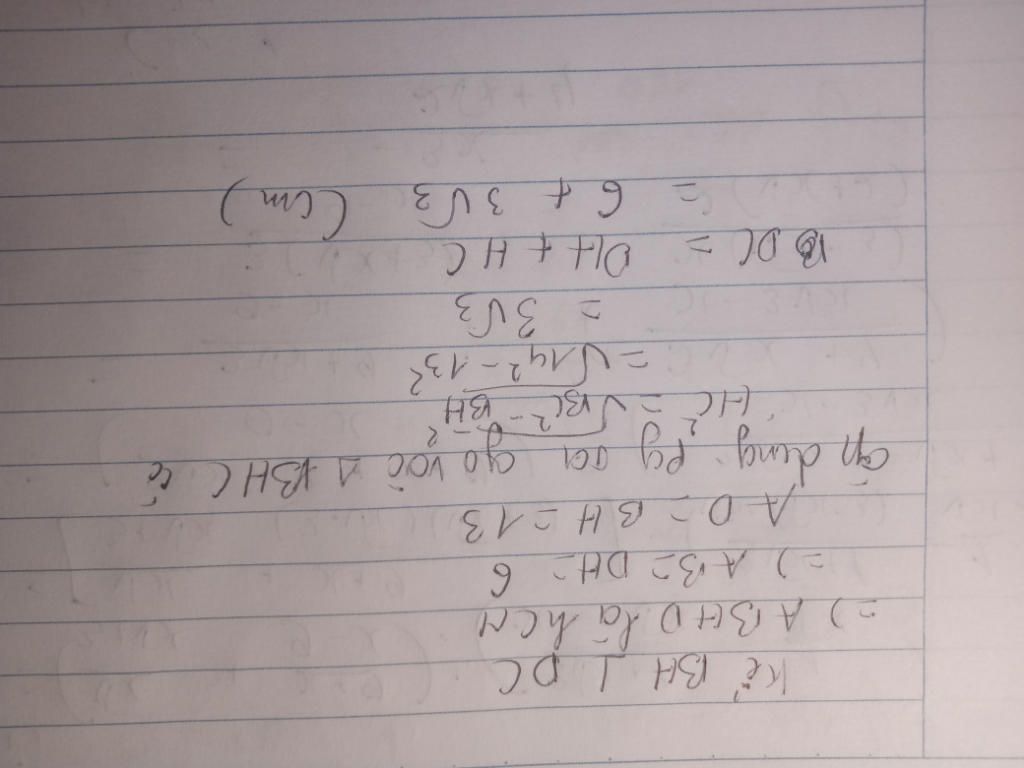 Kẻ BH ⊥ DC
=) ABHD là hCN
=) AB = DH = 6
AD = BH = 13
áp dụng py ta go với Δ BHC có
HC = √BC² - BH²
= √14² - 13²
= 3√3
DC = DH + HC
= 6 + 3√3 (cm)